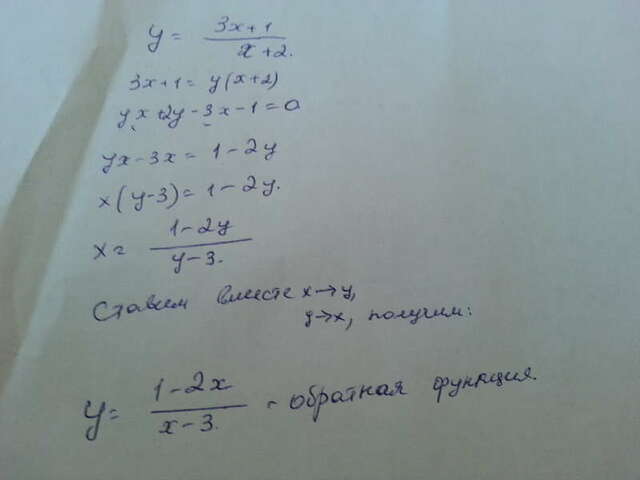 y = 3x+1 / x+2.
3x+1 = y(x+2)
yx+2y-3x-1=0
yx-3x = 1-2y
x(y-3) = 1-2y.
x = 1-2y / y-3.
Ставим вместе x→y,
y→x, получим:
y = 1-2x / x-3. - обратная функция.